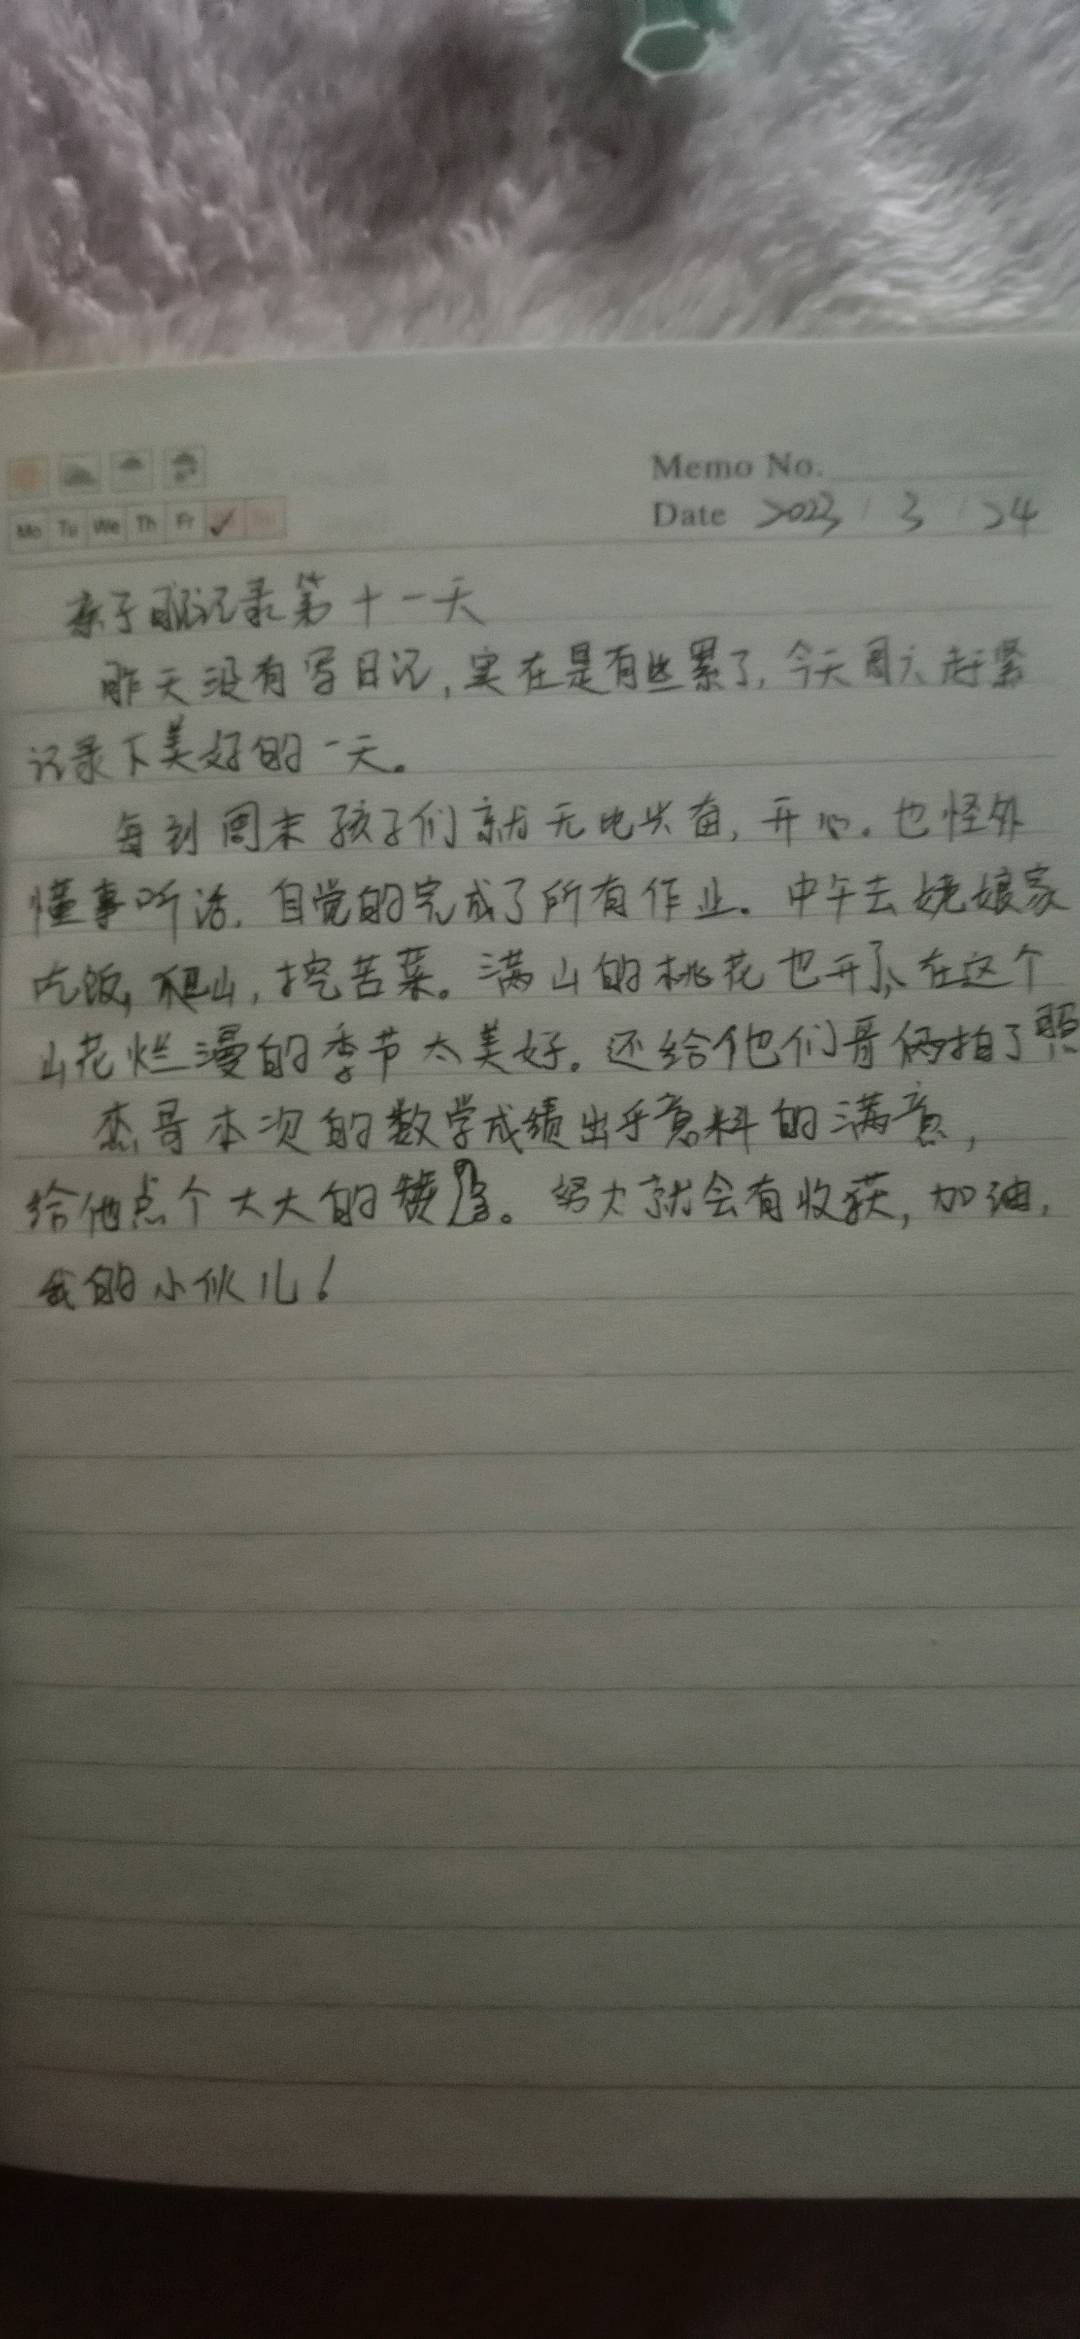 Memo No.
Mo Tu We Th Fr
Date 2023 / 3 / 24
亲子日记记录第十一天
昨天没有写日记,实在是有些累了,今天周六赶紧
记录下美好的一天。
每到周末孩子们就无比兴奋,开心。也怪外
懂事听话,自觉的完成了所有作业。中午去姥娘家
吃饭,爬山,挖苦菜。满山的桃花也开了,在这个
山花烂漫的季节太美好。还给他们哥俩拍了照
杰哥本次的数学成绩出乎意料的满意,
给他点个大大的赞。努力就会有收获,加油,
我的小伙儿!